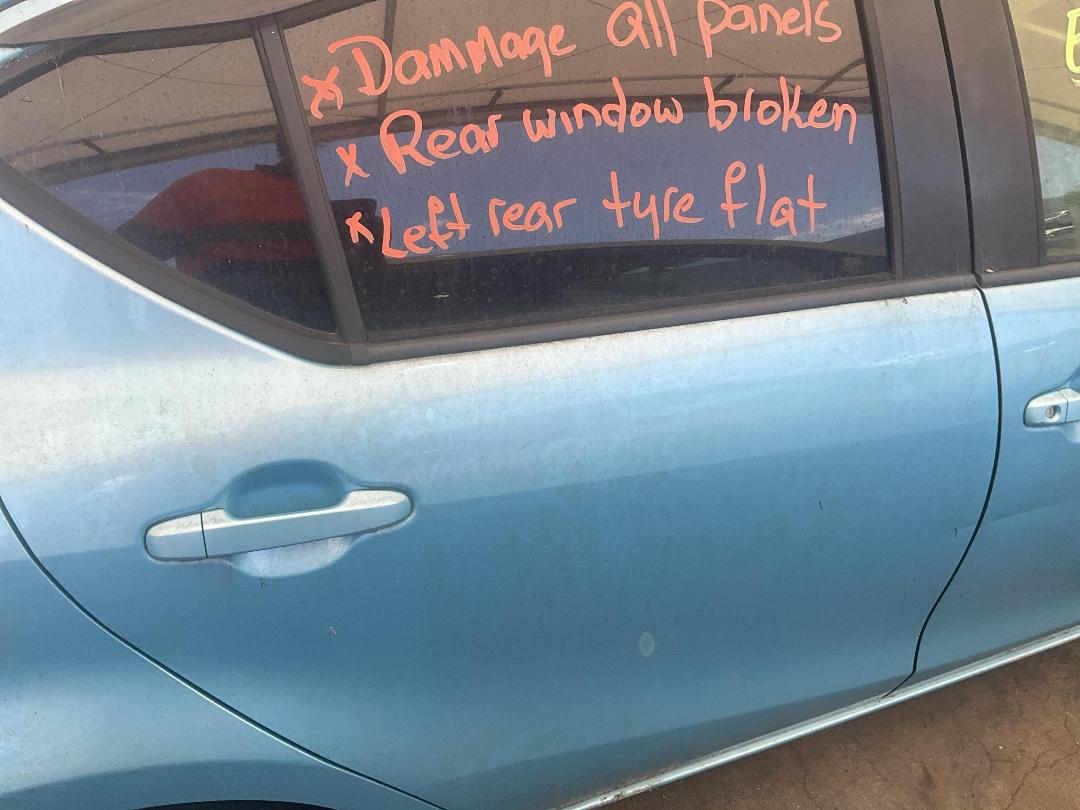 x Dammage all panels
x Rear window broken
x Left rear tyre flat